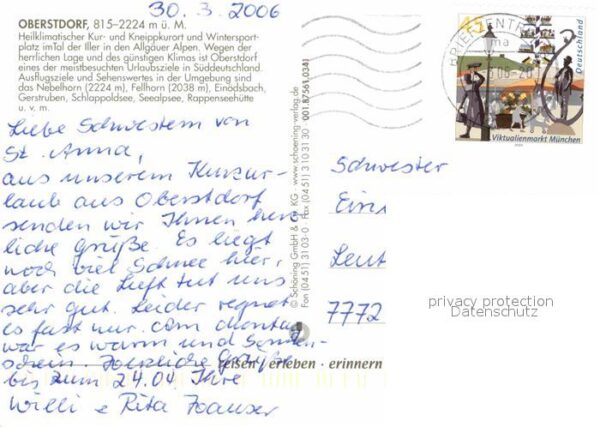 30.3.2006
OBERSTDORF, 815–2224 m ü. M.
Heilklimatischer Kur- und Kneippkurort und Wintersport-
platz imTal der Iller in den Allgäuer Alpen. Wegen der
herrlichen Lage und des günstigen Klimas ist Oberstdorf
eines der meistbesuchten Urlaubsziele in Süddeutschland.
Ausflugsziele und Sehenswertes in der Umgebung sind
das Nebelhorn (2224 m), Fellhorn (2038 m), Einödsbach,
Gerstruben, Schlappoldsee, Seealpsee, Rappenseehütte
u. v. m.
Liebe Schwestern von
St. Anna,
aus unserem Kurzur-
laub aus Oberstdorf
senden wir Ihnen herz
liche Grüße. Es liegt
noch viel Schnee hier,
aber die Luft tut uns
sehr gut. Leider regnet
es fast nur. Am Montag
war es warm und Sonnen-
schein. Herzliche Grüße
bis zum 24.04. Ihre
Willi &
Rita
© Schöning GmbH & Co. KG · www.schoening-verlag.de
Fon (0451) 3103-0 · Fax (0451) 3103130 001 8756103A1
reisen · erleben · erinnern
BRIEFZENTRUM
45
Deutschland
Viktualienmarkt München
Schwester
Leut
7772
privacy protection
Datenschutz